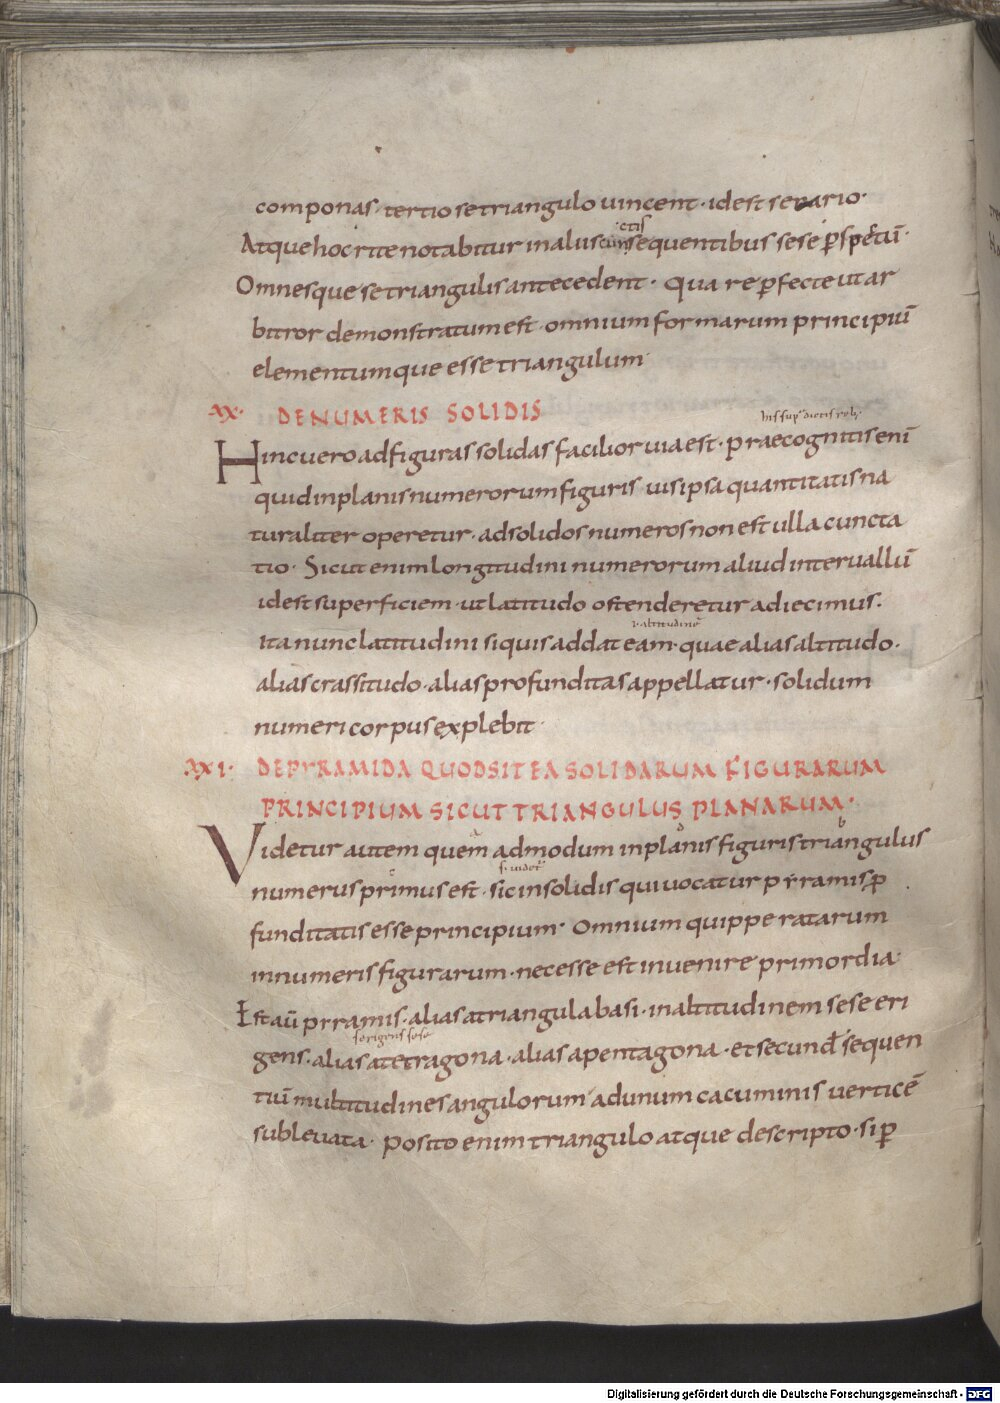 componas· tertio se triangulo uincent· id est senario·
ctis
Atque hoc rite notabitur in aliis cun sequentibus sese ꝑspectū·
Omnesque se triangulis antecedent· Qua re ꝑfecte ut ar
bitror demonstratum est· omnium formarum principiū
elementumque esse triangulum·
XX· DE NUMERIS SOLIDIS
his sup dictis reb;
Hinc uero ad figuras solidas facilior uia est· praecognitis enī
quid in planis numerorum figuris uis ipsa quantitatis na
turaliter operetur· ad solidos numeros non est ulla cuncta
tio· Sicut enim longitudini numerorum aliud interuallū
id est superficiem· ut latitudo ostenderetur adiecimus·
i· altitudinē
ita nunc latitudini si quis addat eam· quae alias altitudo·
alias crassitudo· alias profunditas appellatur· solidum
numeri corpus explebit·
XXI· DE PYRAMIDA QUOD SIT EA SOLIDARUM FIGURARUM
PRINCIPIUM SICUT TRIANGULUS PLANARUM·
Videtur autem quem admodum in planis figuris triangulus
s· uidet
numerus primus est· sic in solidis qui uocatur pyramis ꝓ
funditatis esse principium· Omnium quippe ratarum
in numeris figurarum· necesse est inuenire primordia·
Est aū pyramis· alias a triangula basi· in altitudinem sese eri
se erigens sese
gens· alias a tetragona· alias a pentagona· et secund̄ sequen
tiū multitudines angulorum· ad unum cacuminis uerticē
subleuata· Posito enim triangulo atque descripto· si ꝑ
Digitalisierung gefördert durch die Deutsche Forschungsgemeinschaft - DFG